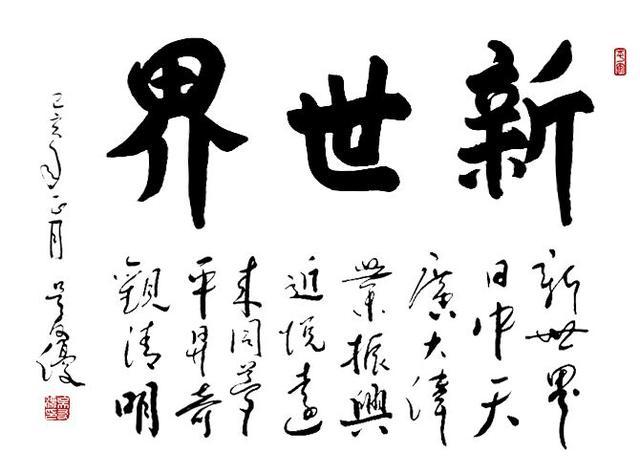 新世界
新世界
日中天
廣大偉
業振興
近悦遠
来同夢
平昇奇
觀清明
己亥年正月